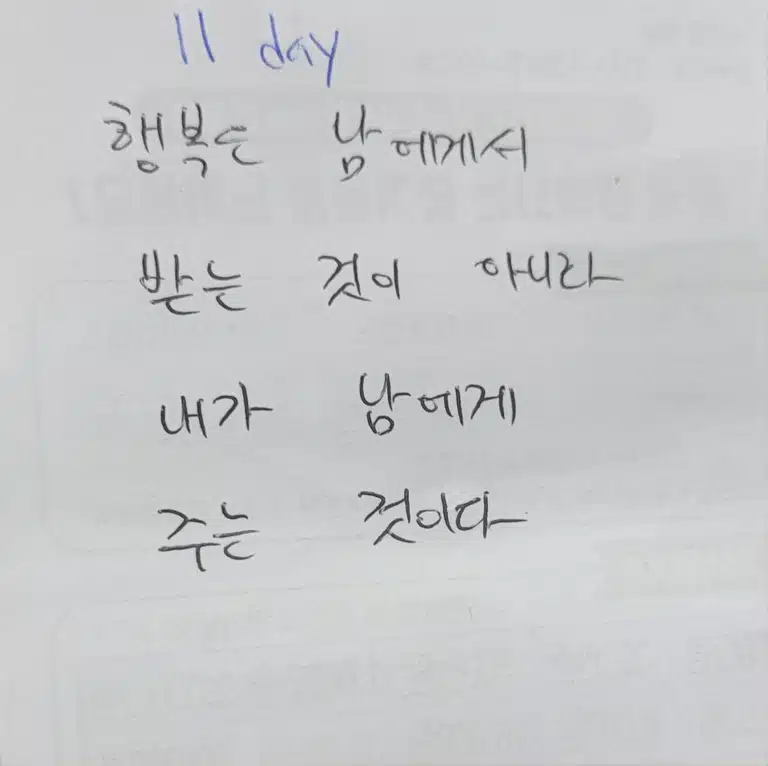 11 day
행복은 남에게서
받는 것이 아니라
내가 남에게
주는 것이다